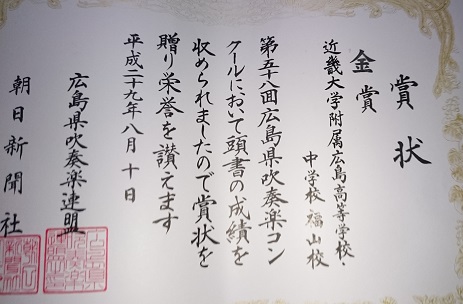 賞状
金賞
近畿大学附属広島高等学校・
中学校福山校
第五十八回広島県吹奏楽コン
クールにおいて頭書の成績を
収められましたので賞状を
贈り栄誉を讃えます
平成二十九年八月十日
広島県吹奏楽連盟
朝日新聞社